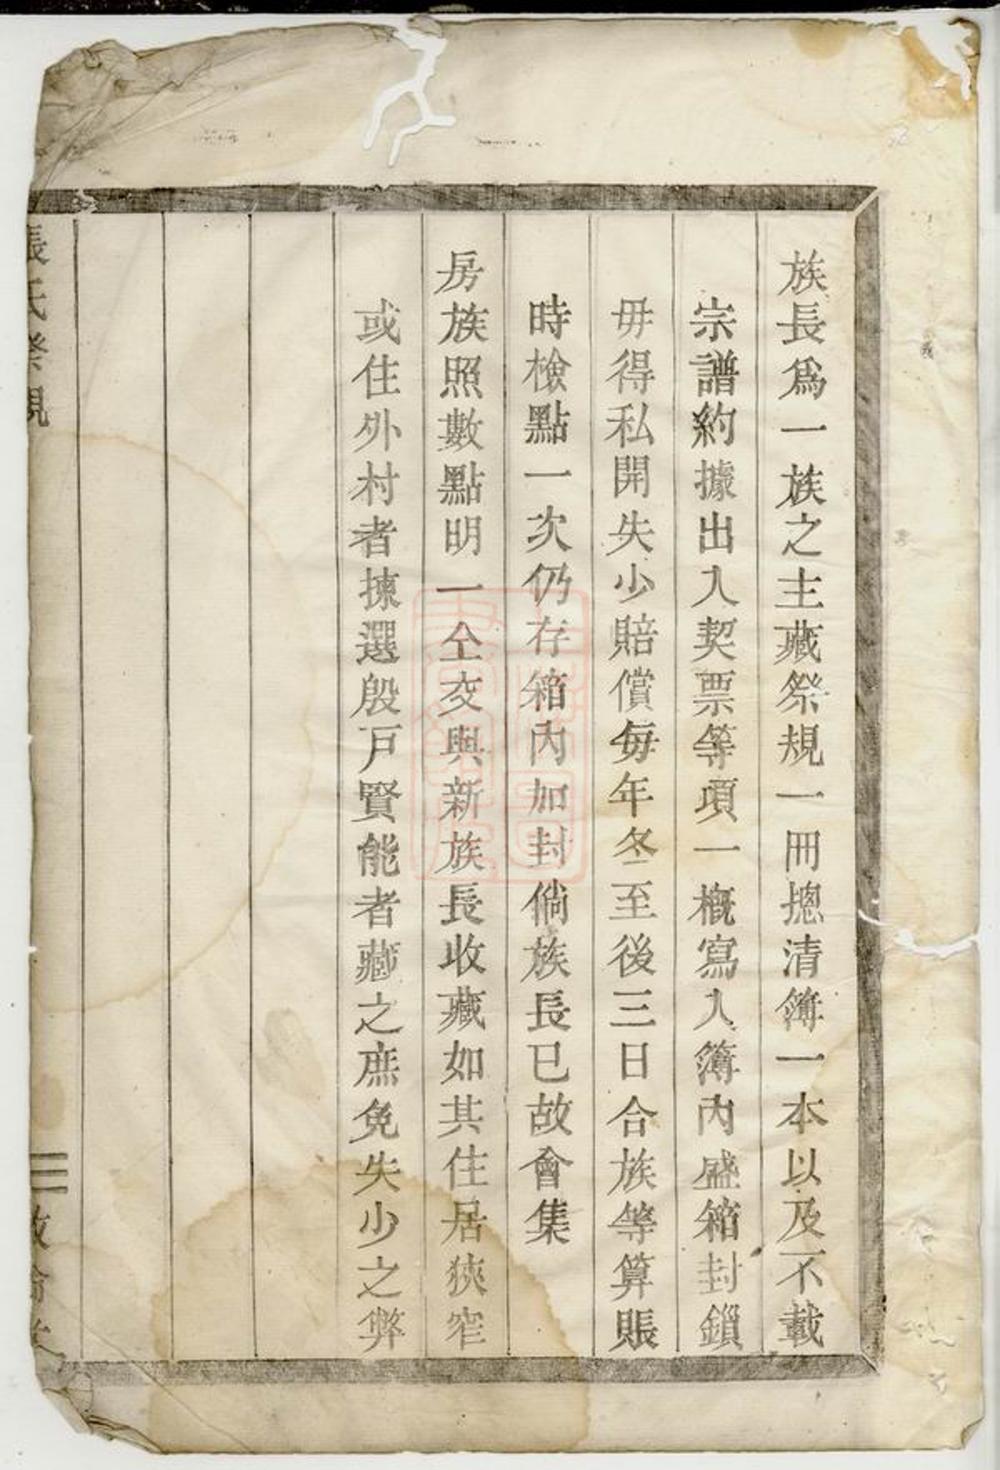 族長爲一族之主藏祭規一冊摠清簿一本以及不載
宗譜約據出入契票等項一概寫入簿內盛箱封鎖
毋得私開失少賠償每年冬至後三日合族等算賬
時檢點一次仍存箱內加封倘族長已故會集
房族照數點明一仝交與新族長收藏如其住居狹窄
或住外村者揀選殷戶賢能者藏之庶免失少之弊
張氏祭規
三